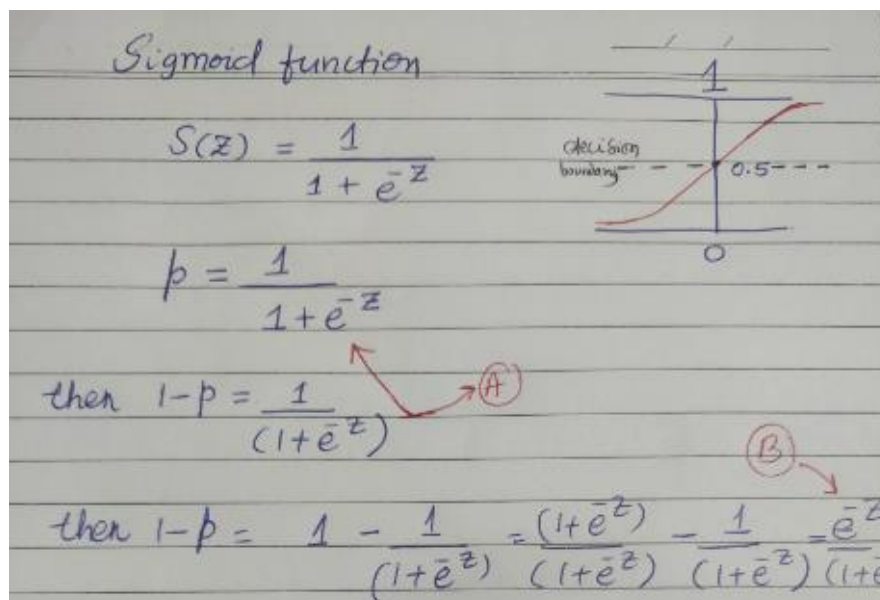 Sigmoid function
1
S(z) = 1 / (1 + e^-z)
decision
boundary
0.5
0
p = 1 / (1 + e^-z)
A
then 1-p = 1 / (1+e^-z)
B
then 1-p = 1 - 1 / (1+e^-z) = (1+e^-z) / (1+e^-z) - 1 / (1+e^-z) = e^-z / (1+e